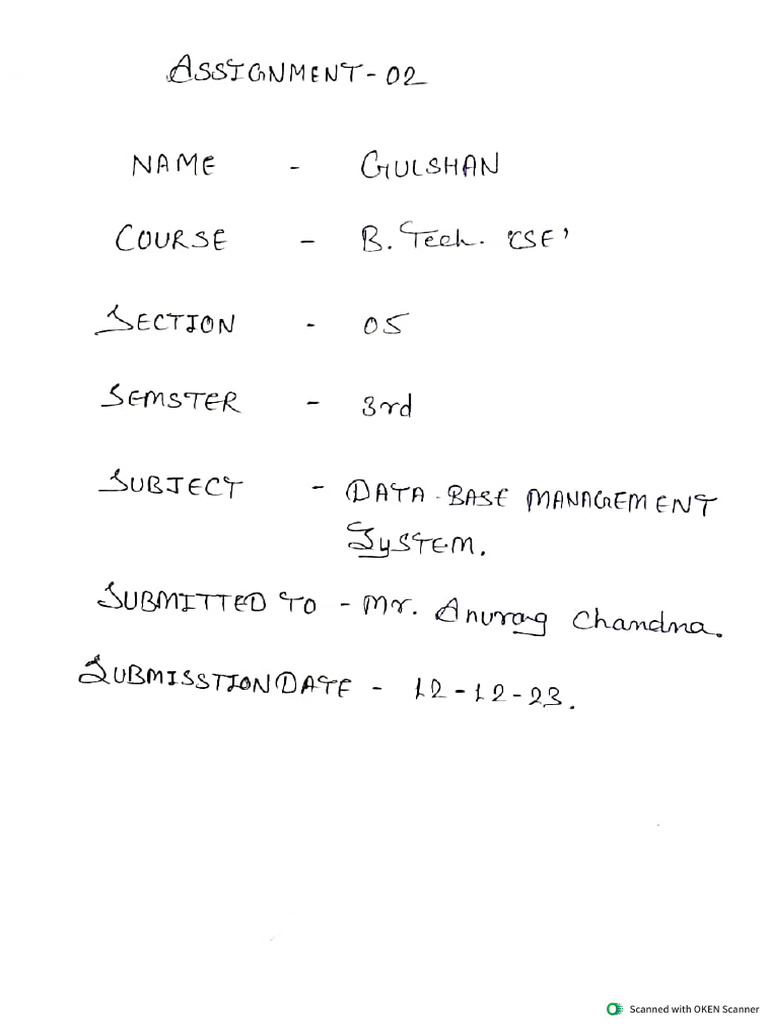 ASSIGNMENT-02
NAME - GULSHAN
COURSE - B.Tech. 'CSE'
SECTION - 05
SEMSTER - 3rd
SUBJECT - DATA-BASE MANAGEMENT
SYSTEM.
SUBMITTED TO - Mr. Anurag Chandna.
SUBMISSTION DATE - 12-12-23.
Scanned with OKEN Scanner